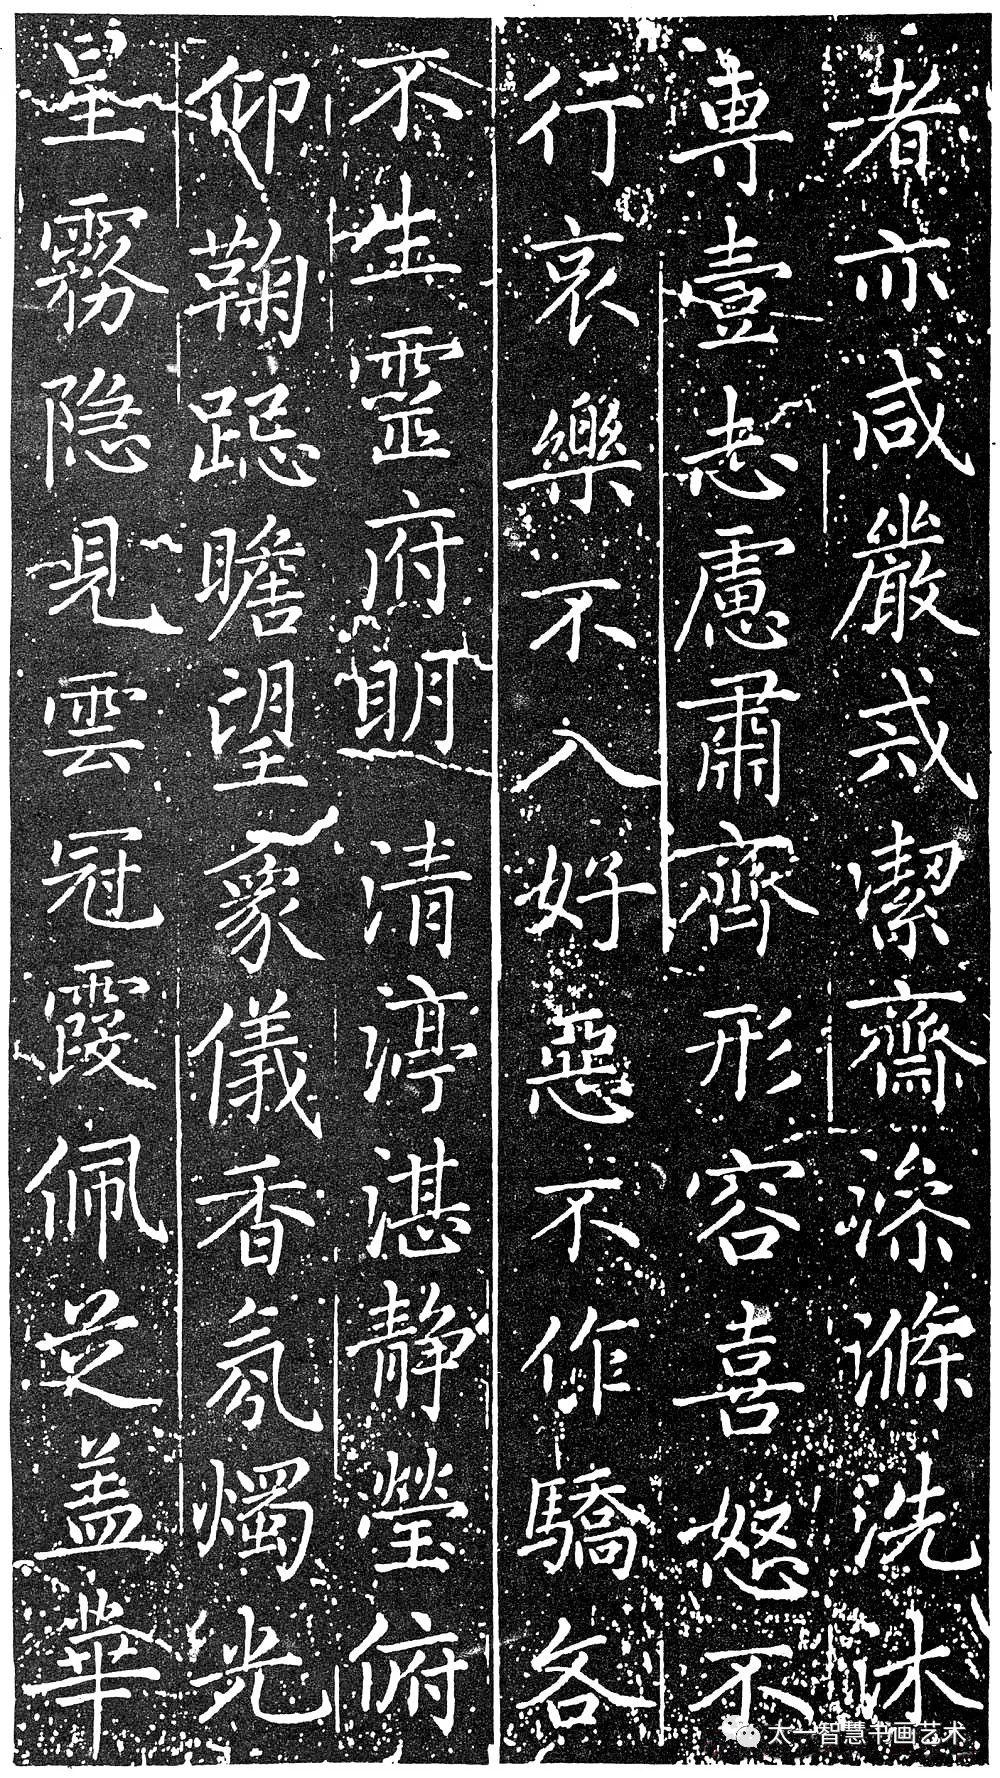 者亦咸嚴戒潔齋澡滌洗沐
專壹志慮肅齊形容喜怒不
行哀樂不入好惡不作驕吝
不生靈府明清渟湛静瑩俯
仰鞠跽瞻望象儀香氛燭光
星霧隐見雲冠霞佩芝盖華
太一智慧书画艺术